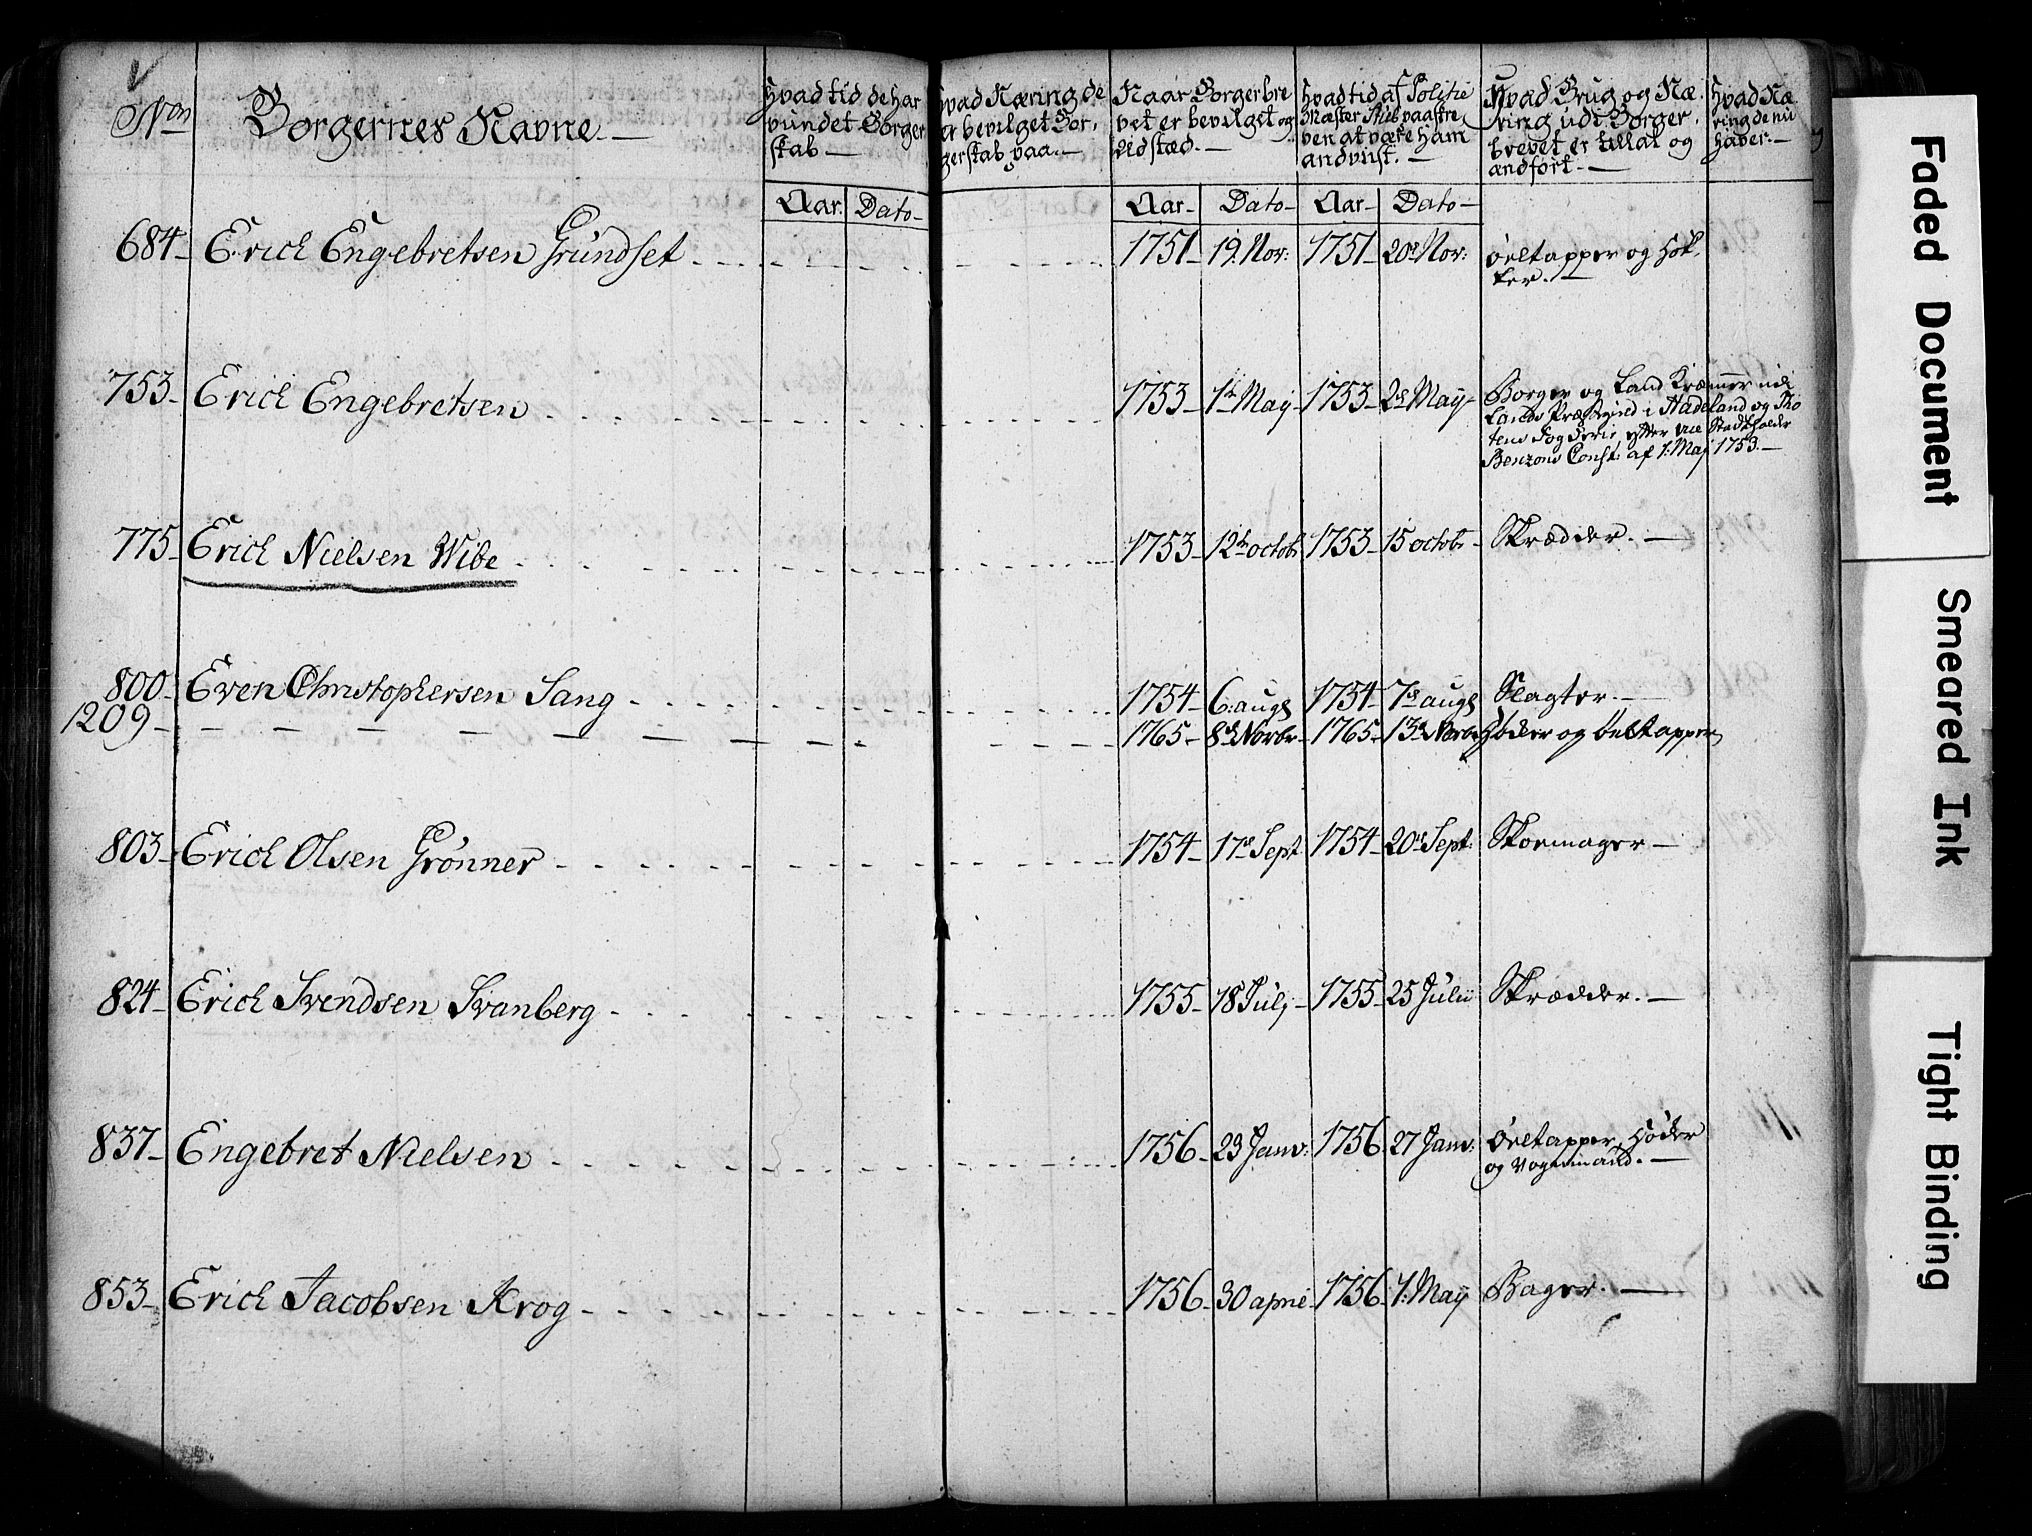 Nᵒʳ
Borgernes Navne. —
Hvad tid de har
vundet Borger
skab —
Hvad Næring de
er bevilget Bor,
gerskab paa. —
Naar Borgerbre
vet er bevilget og
udstæd. —
Hvad tid af Politie
Mæster Stub paaskre,
ven at være ham
andviist. —
Hvad Brug og Næ,
ring udi Borger,
brevet er tillat og
andført. —
Hvad Næ
ring de nu
haver. —
Aar. Dato — Aar — Dato — Aar — Dato —
684 — Erich Engebretsen Grundset 1751 — 19. Nov: 1751 — 20de Nov: øltapper og Høk,
ker. —
753 — Erich Engebretsen 1753 — 1ste May 1753 — 2de May — Borger og Land Kræmmer udi
Lands Præstegield i Hadeland og Tho
tens Fogderie, efter vice Stadtholder
Benzons Const: af 1: Maj 1753. —
775 — Erich Nielsen Wibe 1753 — 12te octob: 1753 — 15 octob: — Skrædder. —
800 — Even Christophersen Sang 1754 — 6: aug 1754 — 7de aug Slagter. —
1209 — 1765 — 8de Novbr — 1765 — 13de Novbr Høcker og øeltapper,
803 — Erich Olsen Grønner 1754 — 17de Sept 1754 — 20de Sept: Skoemager —
824 — Erich Svendsen Svanberg 1755 — 18 Julj — 1755 — 25 Julii Skrædder. —
837 — Engebret Nielsen 1756 — 23 Janv: 1756 27 Janv: Øeltapper, Høcker
og Vognmand. —
853 — Erich Jacobsen Krog 1756 — 30 april 1756 — 1: May Bager. —
Faded Document
Smeared Ink
Tight Binding